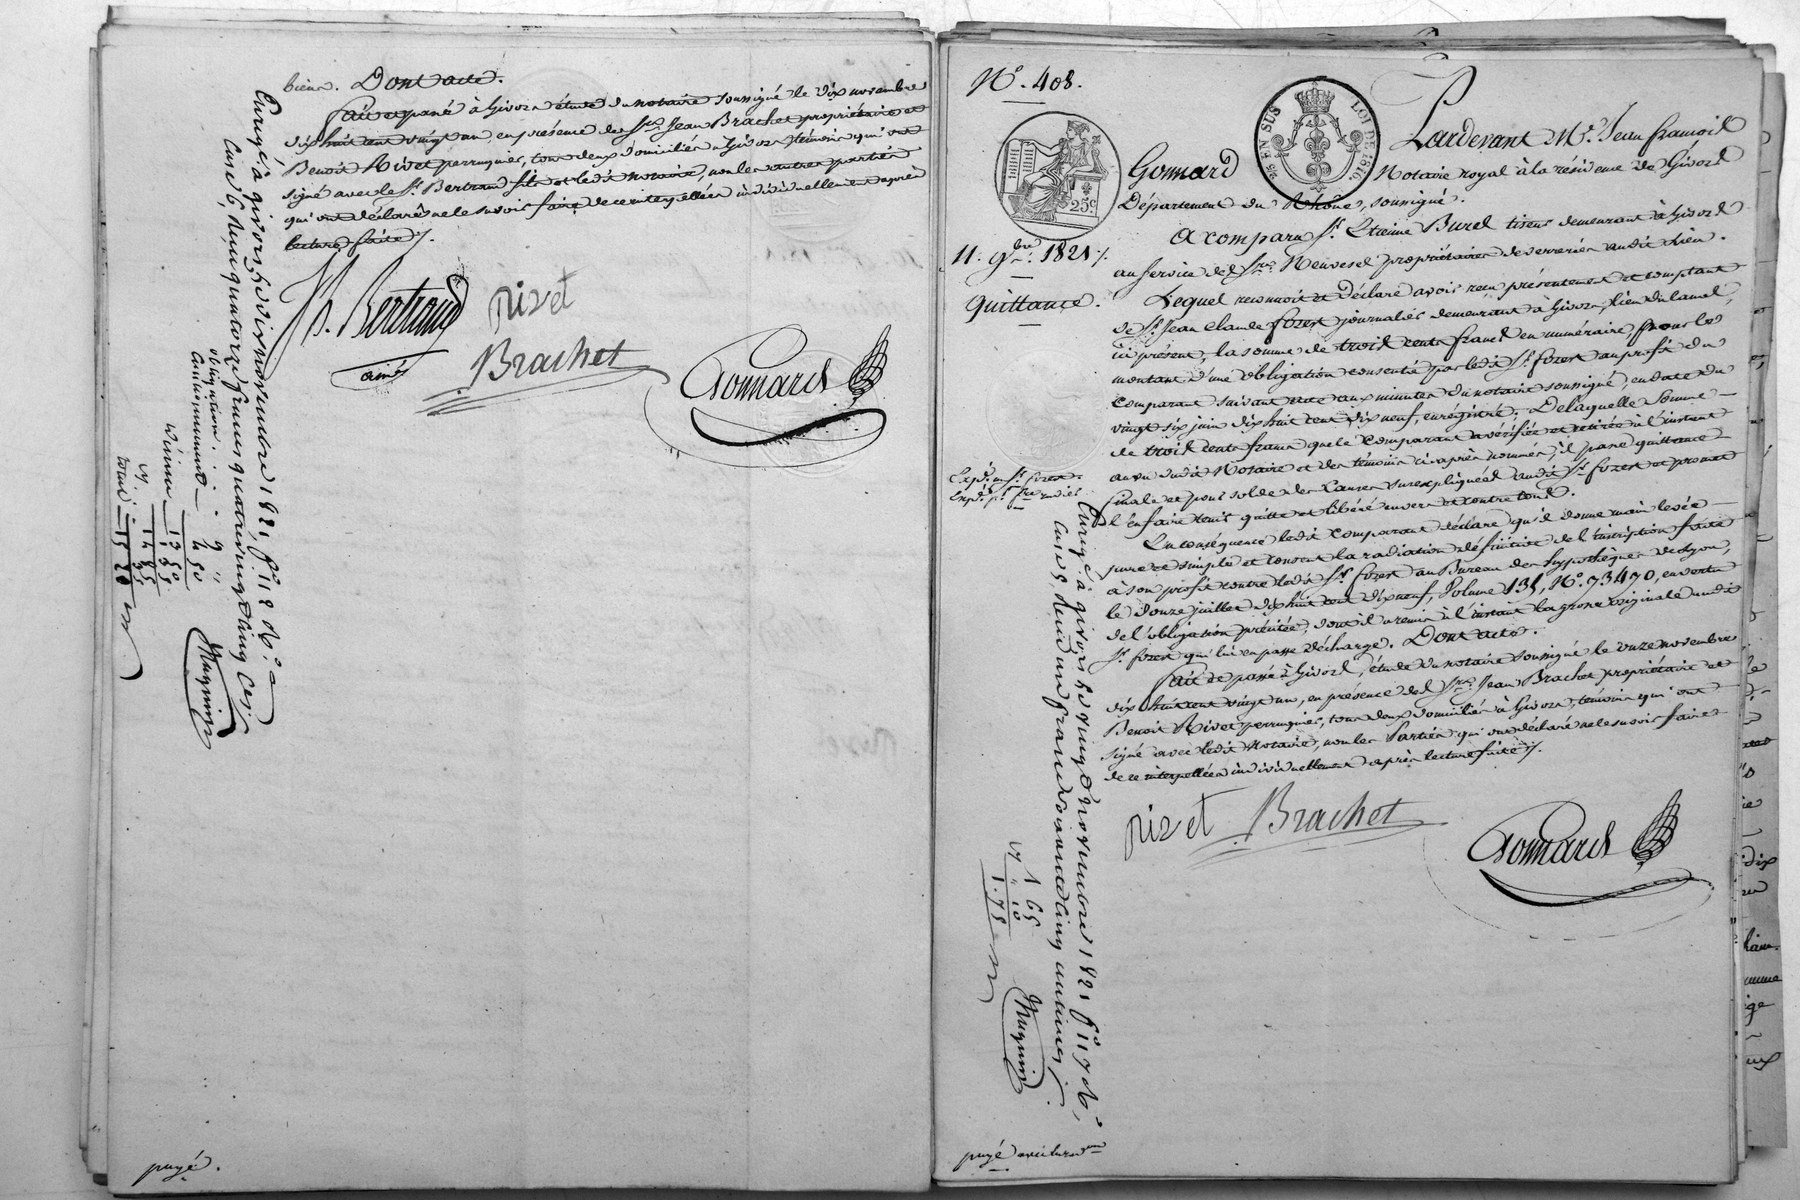 bien. Dont acte.
fait et passé à Givors étude du notaire soussigné le dix novembre
dix huit cent vingt un en présence des Srs. Jean Brachet propriétaire et
Benoit Rivet perruquier, tous deux domiciliés à Givors, témoins qui ont
signé avec le Sr. Bertrand fils et ledit notaire, non les autres parties
qui ont déclaré ne le savoir faire de ce interpellées individuellement après
lecture faite ./.
Bertrand
ainé
rivet
Brachet
Gonnard
Enregé. à givors le dix novembre 1821 fo. 118 Ro.
Case 6, Reçu quatorze francs quatre vingt cinq ces.
obligation . . 9 "
Cautionnement — 4 50
13 50
Dixième 1 35
14 85
total . 15 20
Muguin
payé.
No. 408.
25 EN SUS
LOI DE 1816
25c.
11. 9bre. 1821 ./.
Quittance.
Pardevant Me. Jean françois
Gonnard Notaire royal à la résidence de Givors
Département du Rhône, soussigné.
A comparu Sr. Etienne Burel tiseur demeurant à Givors
au service des Srs. Neuvesel propriétaires de verreries audit lieu.
Lequel reconnoit et déclare avoir reçu présentement et comptant
de Sr. Jean Claude fozer journalier demeurant à Givors, lieu du canal,
ici présent, la somme de trois cents francs en numéraire pour le
montant d'une obligation consentie par ledit Sr. fozer au profit du
comparant suivant acte aux minutes du notaire soussigné, en date du
vingt six juin dix huit cent dix neuf, enregistré. De laquelle somme —
de trois cents francs que le comparant a vérifiée et retirée à l'instant
au vu dudit Notaire et des témoins ci-après nommés, il passe quittance
finale et pour solde des causes susexpliquées audit Sr. fozer et promet
l'en faire tenir quitte et libéré envers et contre tous.
En conséquence ledit comparant déclare qu'il donne main levée —
pure et simple et consent la radiation définitive de l'inscription faite
à son profit contre ledit Sr. fozer au Bureau des hypothèques de Lyon,
le douze juillet dix huit cent dix neuf, Volume 131, No. 73470, en vertu
de l'obligation précitée, dont il a remis à l'instant la grosse originale audit
Sr. fozer qui lui en passe décharge. Dont acte.
fait et passé à Givors, étude du notaire soussigné le onze novembre
dix huit cent vingt un, en présence des Srs. Jean Brachet propriétaire et
Benoit Rivet perruquier, tous deux domiciliés à Givors, témoins qui ont
signé avec ledit Notaire, non les Parties qui ont déclaré ne le savoir faire
de ce interpellées individuellement après lecture faite ./.
rivet Brachet
Gonnard
Enregé. à givors le vingt novembre 1821 fo. 119 Ro.
Case 5 Reçu un franc soixante cinq centimes
1 65
" 10
1.75
Muguin